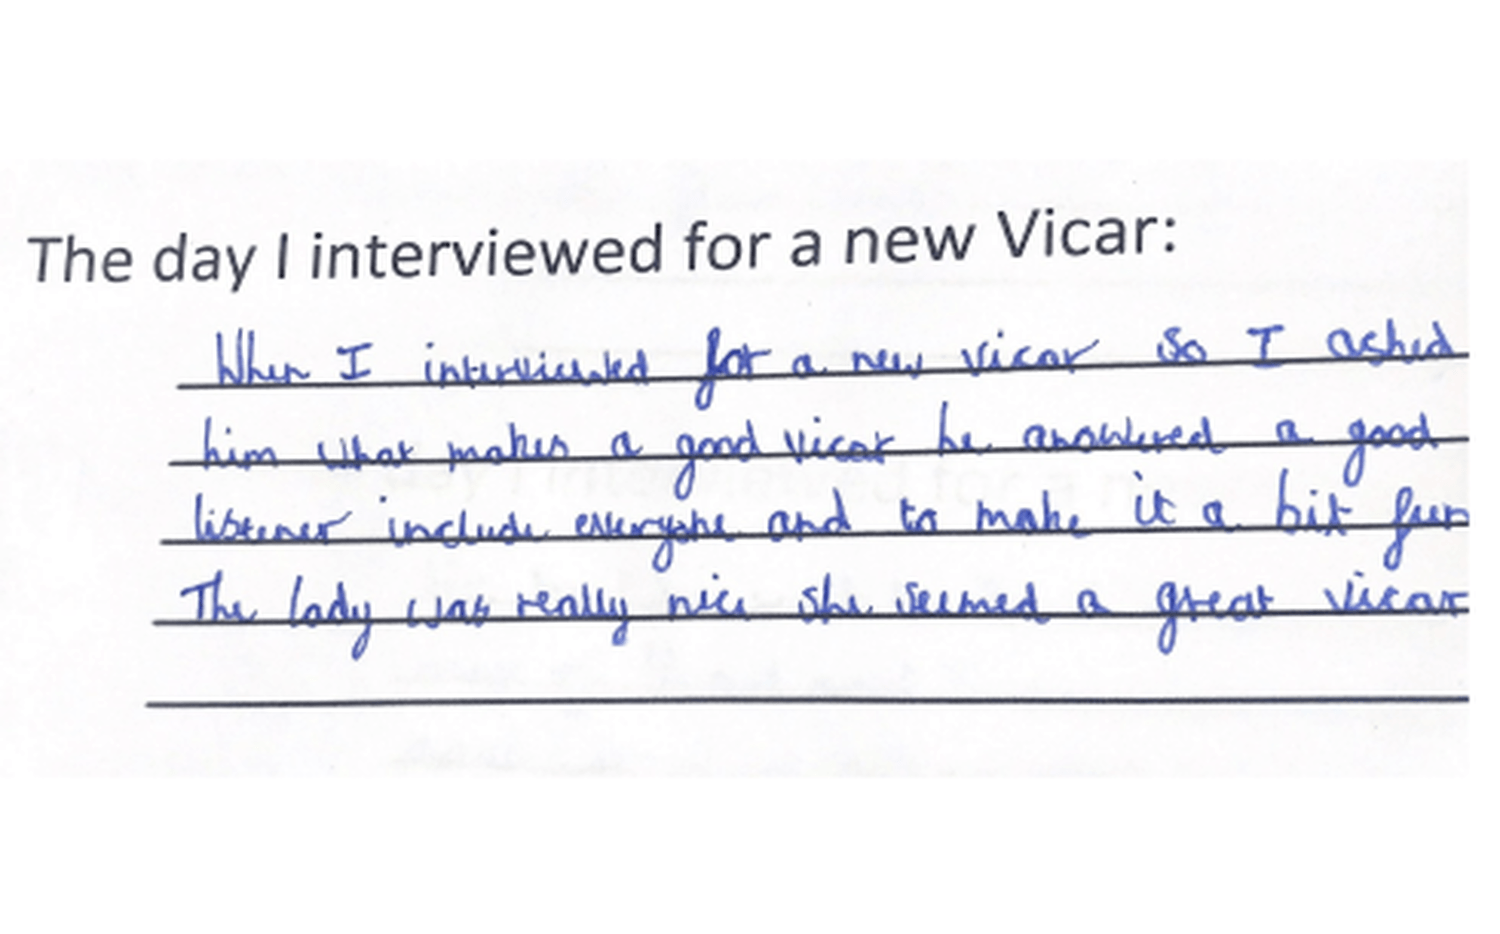 The day I interviewed for a new Vicar:
When I interviewed for a new vicar so I asked
him what makes a good vicar he answered a good
listener include everyone and to make it a bit fun
The lady was really nice she seemed a great vicar